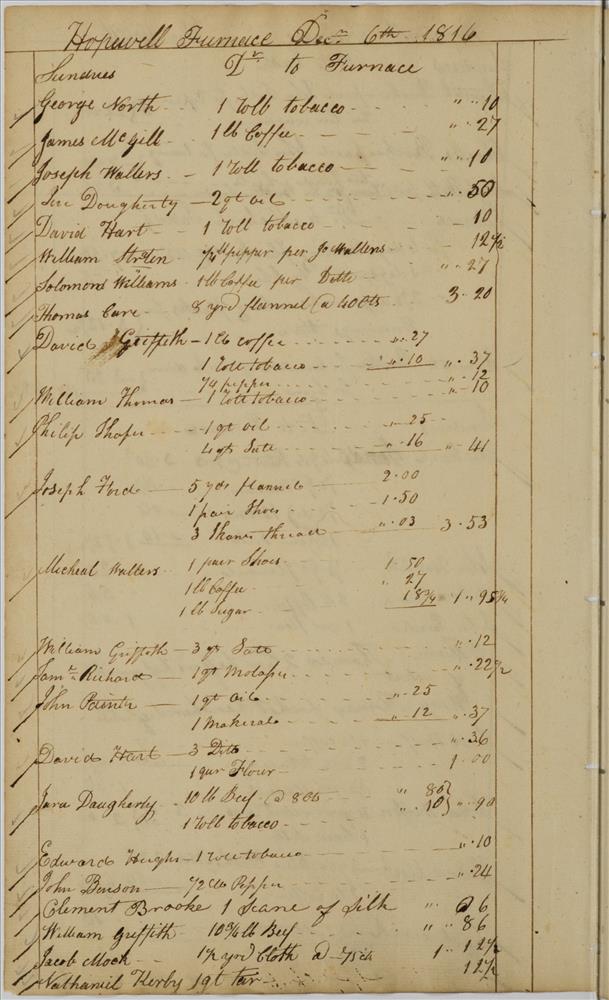 Hopewell Furnace Decr 6th 1816
Sundries Dr to Furnace
George North 1 roll tobacco " " 10
James McGill 1 lb Coffee " " 27
Joseph Wallers 1 roll tobacco " " 10
Dougherty 2 qt oil " 50
David Hart 1 roll tobacco 10
William 1/4 lb pepper per Jo Wallers 12 1/2
Solomond Williams 1 lb Coffee per Ditto " " 27
Thomas Care 8 yrd flannel @ 40 Cts 3 . 20
David Griffith 1 lb coffee " . 27
1 roll tobacco " . 10 " . 37
1/4 pepper " . 12
William Thomas 1 roll tobacco " . 10
Philip 1 qt oil " 25
4 qts Salt " . 16 " 41
Joseph Ford 5 yds flannel 2.00
1 pair Shoes 1.50
3 Skanes thread " . 03 3 . 53
Micheal Wallers 1 pair Shoes 1 50
1 lb Coffee " 27
1 lb Sugar 18 3/4 1 " 95 3/4
William Griffith 3 qts Salt " . 12
Saml Richard 1 qt Molases " . 22 1/2
John Painter 1 qt Oil " 25
1 Makeral " 12 " . 37
David Hart 3 Ditto " . 36
1 qur Flour 1 . 00
Daugherty 10 lb Beef @ 8 Cts " 80
1 roll tobacco " . 10 } " . 90
Edward Hughs 1 roll tobacco " . 10
John Benson 1/2 lb Pepper " . 24
Clement Brooke 1 Scane of Silk " 06
William Griffith 10 3/4 lb Beef " " 86
Jacob Mock 1 1/2 yrd Cloth @ 75 cts 1 " 12 1/2
Nathaniel Kerby 1 qt tar 12 1/2